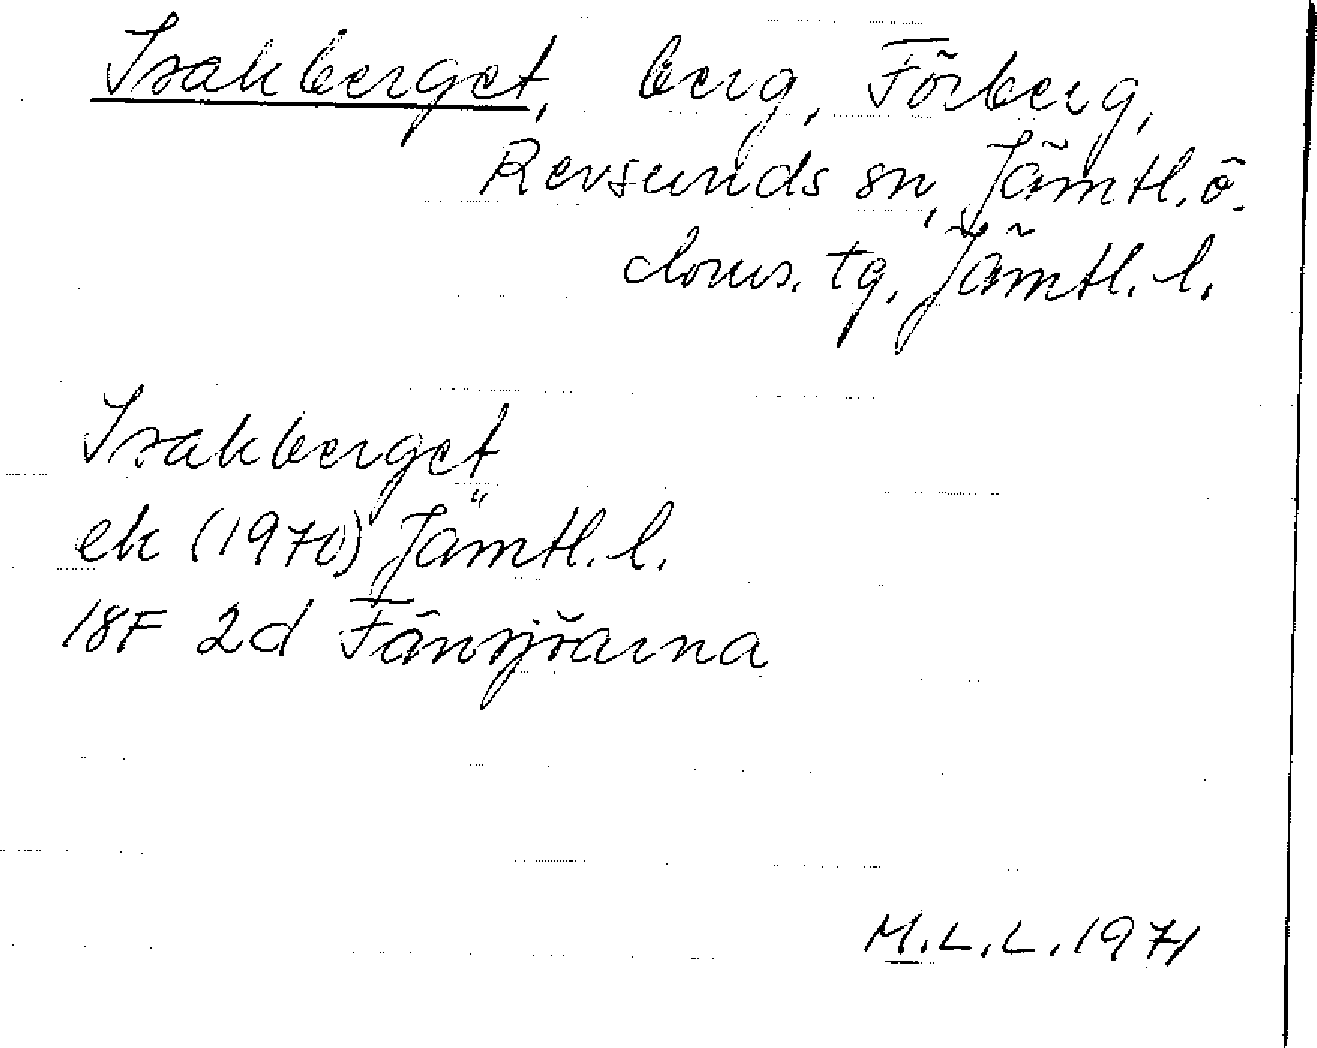 Isakberget, berg, Förberg,
Revsunds sn, Jämtl. ö.
doms. tg, Jämtl. l.
Isakberget
ek (1970) Jämtl. l.
18F 2d Fånsjöarna
M.L.L. 1971